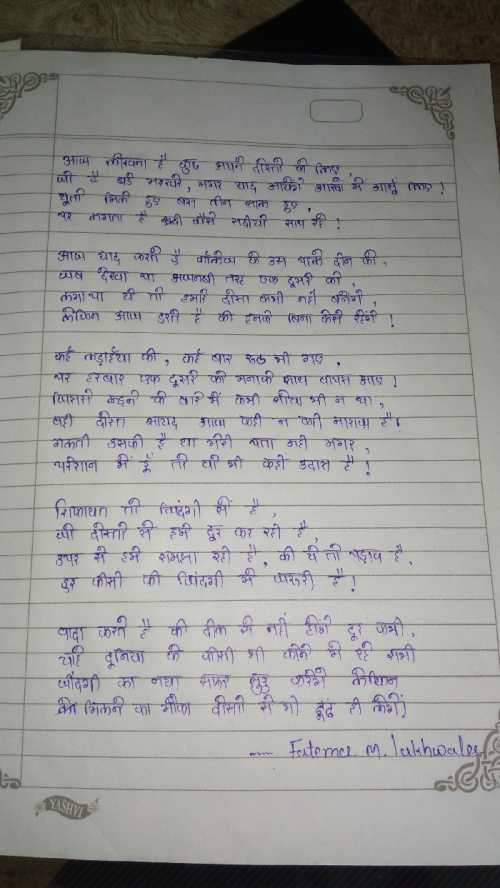 आज लीखना है कुछ अपने दोस्तो के लिए,
जो है बडे मस्तीखोर, मगर याद आयेंगे आखो में आसुँ लिए!
यूतो मिले हुए बस तीन साल हुए,
पर लगता है जैसे सदीयो साथ रहे!
आज याद करते है कॉलेज के उस पहले दीन को,
जब देखा था अजनबी तरह एक दूसरे को,
लगा था ये तो हमारे दोस्त कभी नही बनेंगे,
लेकिन आज डरते है की इनके बिना कैसे रहेंगे!
कई लड़ाईया की, कई बार रूठ भी गए,
पर हरबार एक दूसरे को मनाके साथ वापस आए!
जिससे रूठने के बारे में कभी सोचा भी न था,
वही दोस्त शायद आज कही न कही नाराज है।
गलती उसकी है या मेरी पता नही मगर,
परेशान मैं हूँ तो वो भी कही उदास है!
शिकायत तो जिंदगी से है,
जो दोस्तो से हमे दूर कर रही है,
उपर से हमे समझा रही है, की ये तो पड़ाव है,
हर कीसी की जिंदगी में जरूरी है!
वादा करते है की दील से नहीं होंगे दूर कभी,
चाहे दूनिया के कीसी भी कोने मे रहे सभी
जींदगी का नया सफर शुरु करेंगे लेकिन
मिलने का मौका दोस्तो से भी ढूंढ ही लेंगे।
— Fatema M. Lakhwala
YASHVI